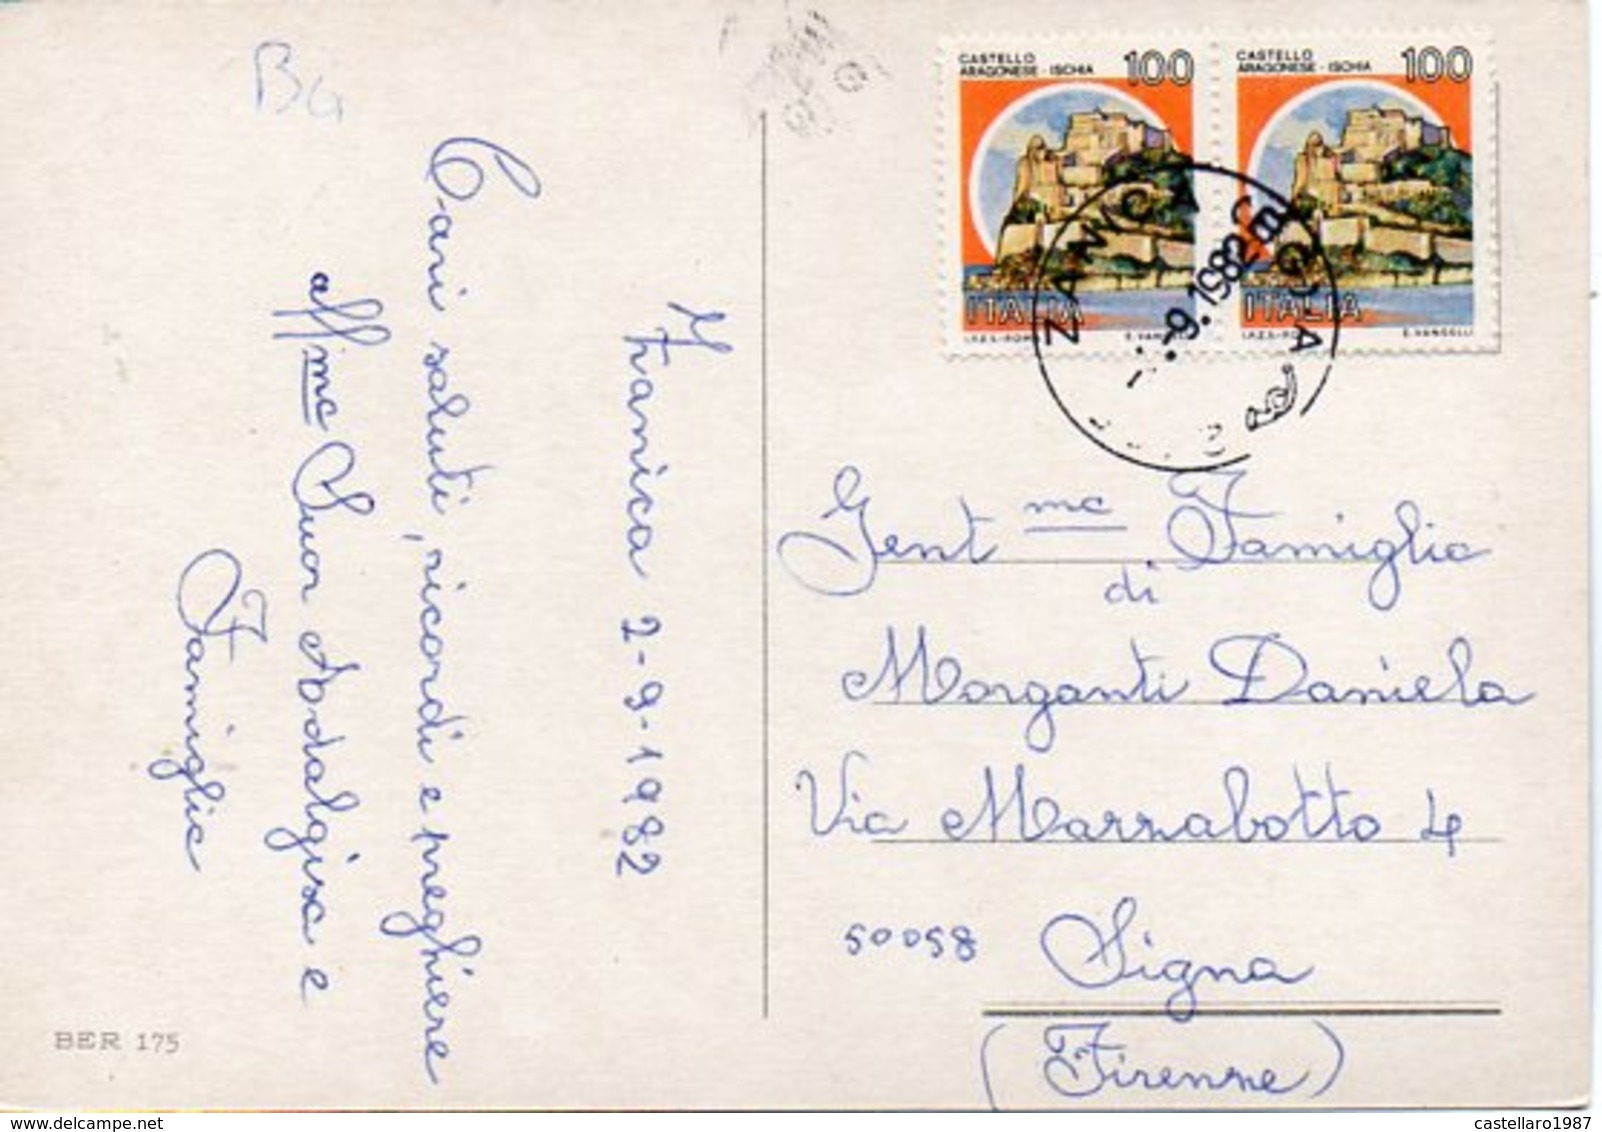 BG
Zanica 2-9-1982
Cari saluti, ricordi e preghiere
aff.me Suor Adalgisa e
Famiglia
BER 175
CASTELLO
ARAGONESE - ISCHIA 100
ITALIA
I.P.Z.S.-ROMA E. VANGELLI
CASTELLO
ARAGONESE - ISCHIA 100
ITALIA
I.P.Z.S.-RO E. VANGELLI
ZANICA
-9.1982
Gent.ma Famiglia
di
Morganti Daniela
Via Marzabotto 4
50058 Signa
(Firenze)
castellaro1987